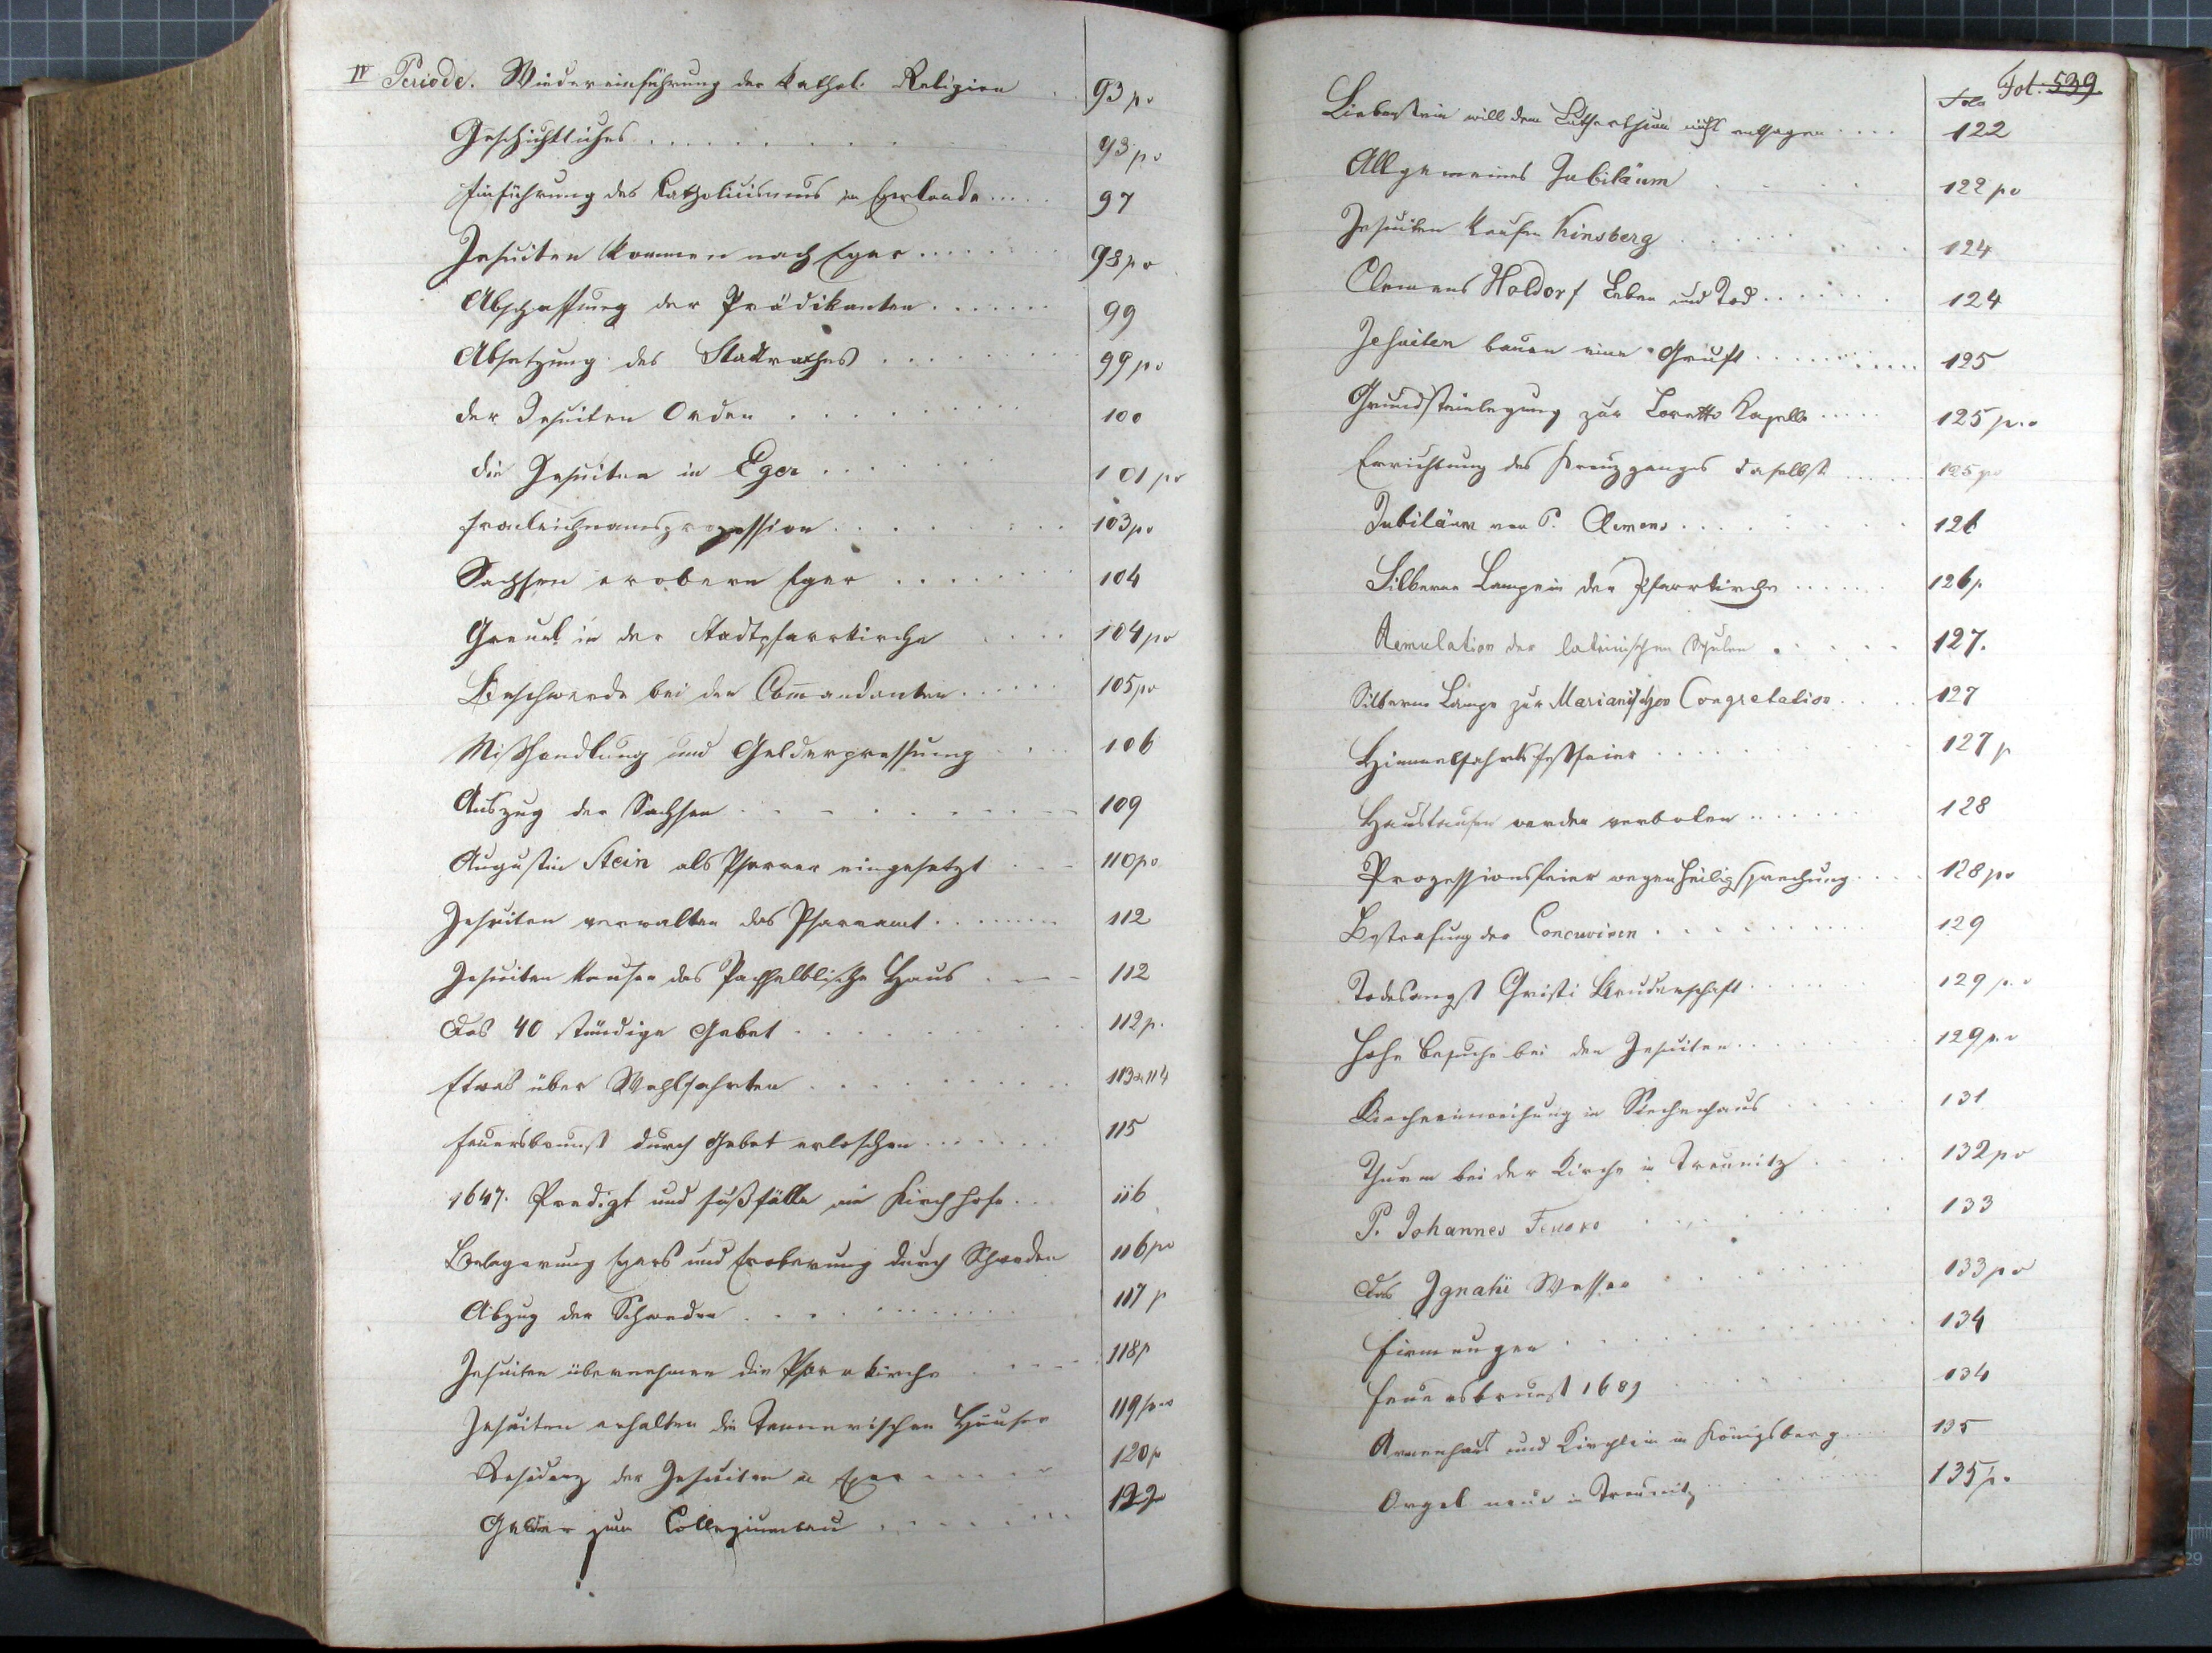 IV Periode. Wiedereinführung der kathol. Religion . . 93 po
Geschichtliches . . . . . . . . 93 po
Einführung des Catholicismus im Egerlande . . . . . 97
Jesuiten kommen nach Eger . . . . . . 98 po
Abschaffung der Prädikanten . . . . . . . 99
Absetzung des Stadtrathes . . . . . . . 99 po
der Jesuiten Orden . . . . . . . . . 100
die Jesuiten in Eger . . . . . . . 101 po
Fronleichnamsprozession . . . . . . . 103 po
Sachsen erobern Eger . . . . . . . 104
Greuel in der Stadtpfarrkirche . . . . 104 po
Beschwerde bei den Com̅andanten . . . . . 105 po
Mißhandlung und Gelderpressung . . . 106
Auszug der Sachsen . . . . . . . . 109
Augustin Stein als Pfarrer eingesetzt . . 110 po
Jesuiten verwalten das Pfarramt . . . . . . . . 112
Jesuiten kaufen das Pachhelblische Haus . . . 112
das 40 stündige Gebet . . . . . . . . 112 p.
Etwas über Wahlfahrten . . . . . . . . . . 113 & 114
Feuersbrunst durch Gebet erloschen . . . . . . 115
1647. Predigt und Fußfälle im Kirchhofe . . . 116
Belagerung Egers und Eroberung durch Schweden 116 po
Abzug der Schweden . . . . . . . . . 117 p
Jesuiten übernehmen die Pfarrkirche . . . . 118 p
Jesuiten erhalten die Häuser 119 p.o
Residenz der Jesuiten in Eger . . . . . 120 p
Gelder zum Collegiumbau . . . . . . . 122
Fol. 539
Folo
Liebenstein will dem Lutherthum nicht entsagen . . . . 122
Allgemeines Jubiläum . . . . 122 po
Jesuiten kaufen Kinsberg . . . . . . . . 124
Clemens Holdorf Leben und Tod . . . . . . 124
Jesuiten bauen eine Gruft . . . . . . . . . . 125
Grundsteinlegung zur Loretto Kapelle . . . . . 125 p.o
Errichtung des Kreuzganges daselbst . . . . . 125 po
Jubiläum von P. Clemens . . . . . . . 126
Silberne Lampe in der Pfarrkirche . . . . . . 126 p.
Aemulation der lateinischen Schulen . . . . . 127.
Silberne Lampe zur Marianischen Congretation . . . . 127
Himmelfahrtsfestfeier . . . . . . . . 127 p
Haustaufen werden verboten . . . . . . 128
Prozessionsfeier wegen Heiligsprechung . . . . 128 po
Bestrafung der . . . . . . . . . 129
Todesangst Christi Bruderschaft . . . . . . 129 p.o
Hohe Besuche bei den Jesuiten . . . . . . . 129 p.o
Kircheneinweihung in Siechenhaus . . . . . 131
Thurm bei der Kirche in Treunitz . . . . 132 po
P. Johannes . . . . . . . 133
das Ignatii Wasser . . . . . . . 133 po
Firmungen . . . . . . . . . . 134
Feuersbrunst 1689 . . . . . . . 134
Armenhaus und Kirchlein in Königsberg . . . . 135
Orgel neue in Treunitz . . . . . . . 135 p.